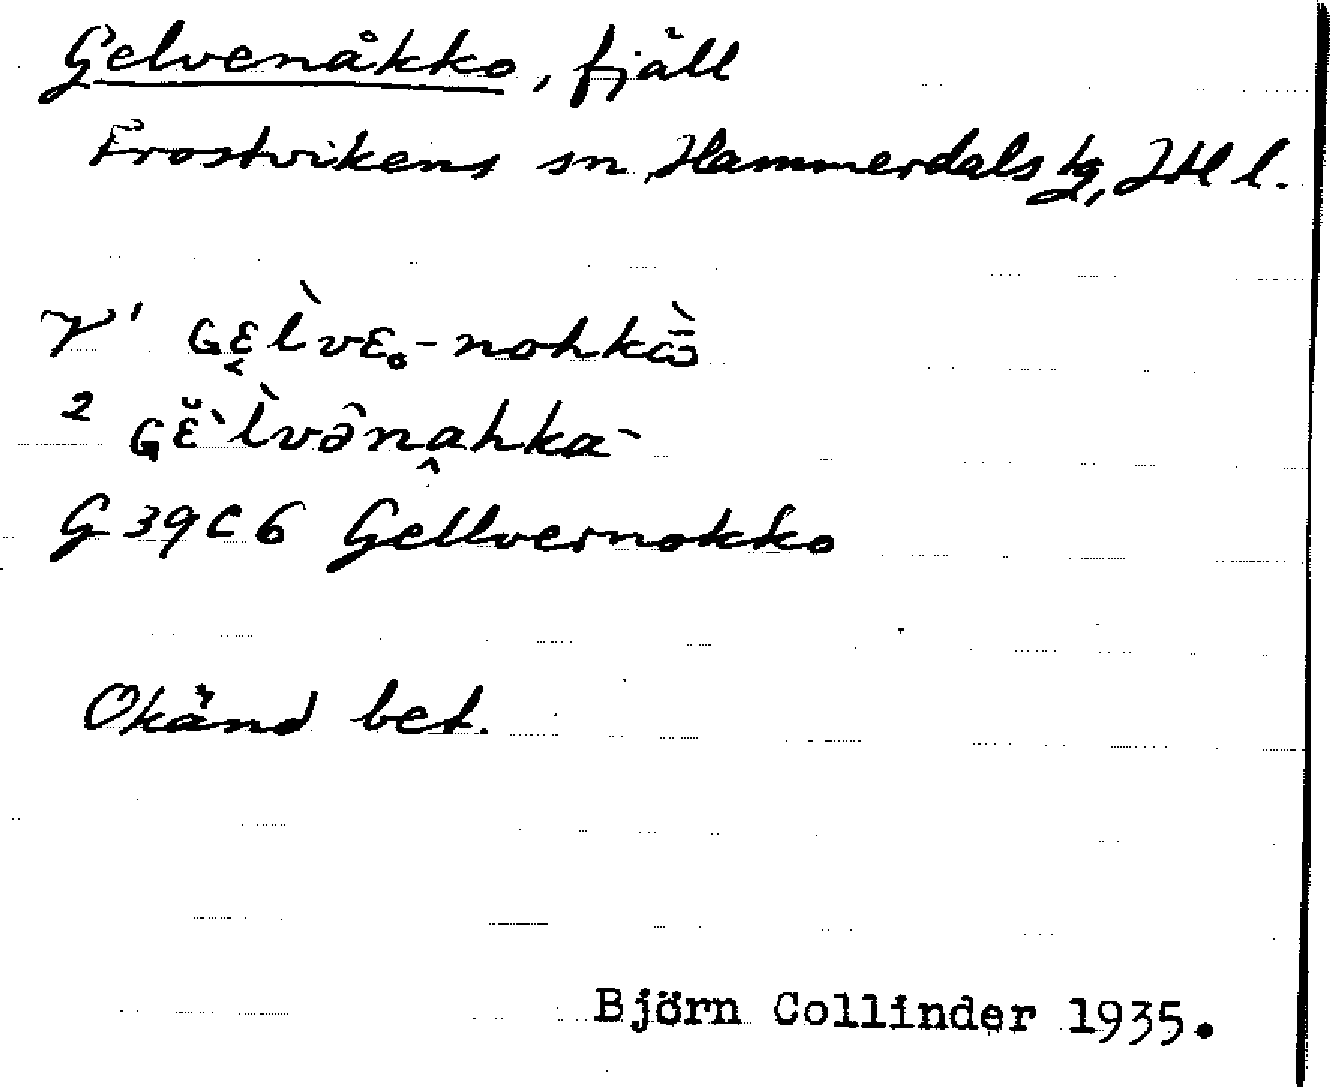 Gelvenåkko, fjäll
Frostvikens sn, Hammerdals tg, Jtl l.
ɢɛ̨l̀vɛ˳-nohkɑ̄̀ɔ
2 ɢɛ̆̀l̀və̂nahka-
G 39 C 6 Gellvernokko
Okänd bet.
Björn Collinder 1935.